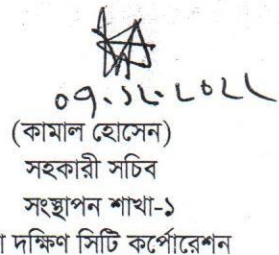 ০৭.১২.২০২২
(কামাল হোসেন)
সহকারী সচিব
সংস্থাপন শাখা-১
দক্ষিণ সিটি কর্পোরেশন